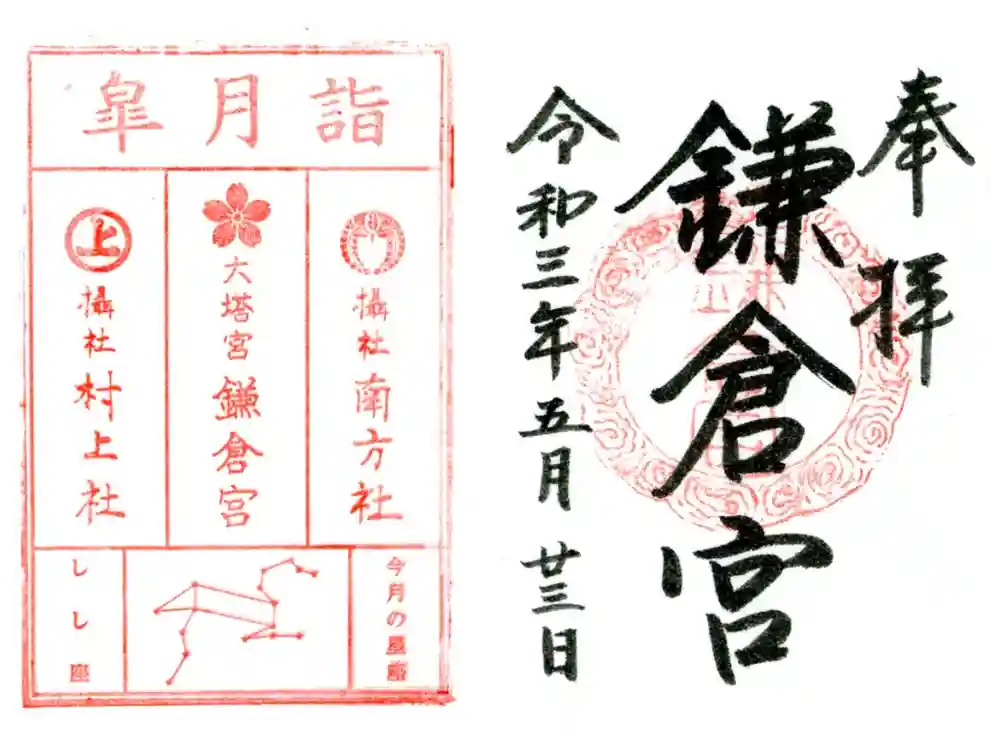 奉拝
鎌倉宮
令和三年五月廿三日
皐月詣
上
攝社南方社
大塔宮鎌倉宮
攝社村上社
今月の星座
しし座